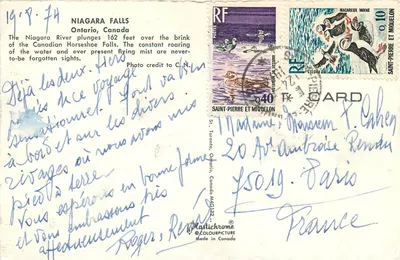 19.8.74
NIAGARA FALLS
Ontario, Canada
The Niagara River plunges 162 feet over the brink
of the Canadian Horseshoe Falls. The constant roaring
of the water and ever present flying mist are
never-to-be forgotten sights.
Photo credit to C.N.
Déjà les deux tiers
de ce voyage
sensationnel. Tout va bien
à bord et sur les divers
rivages où nous avons mis
pied à terre.
Vous espérons en bonne forme
et vous embrassons très
affectueusement
Roger, Renée
St. Toronto, Ontario, Canada
Plastichrome
® COLOURPICTURE
Made in Canada
RF
0,40
SAINT-PIERRE ET MIQUELON
MACAREUX MOINE
RF
0,10
SAINT-PIERRE ET MIQUELON
ARD
Madame, Monsieur Cahen
20 Av. Ambroise Rendu
75019. Paris
France